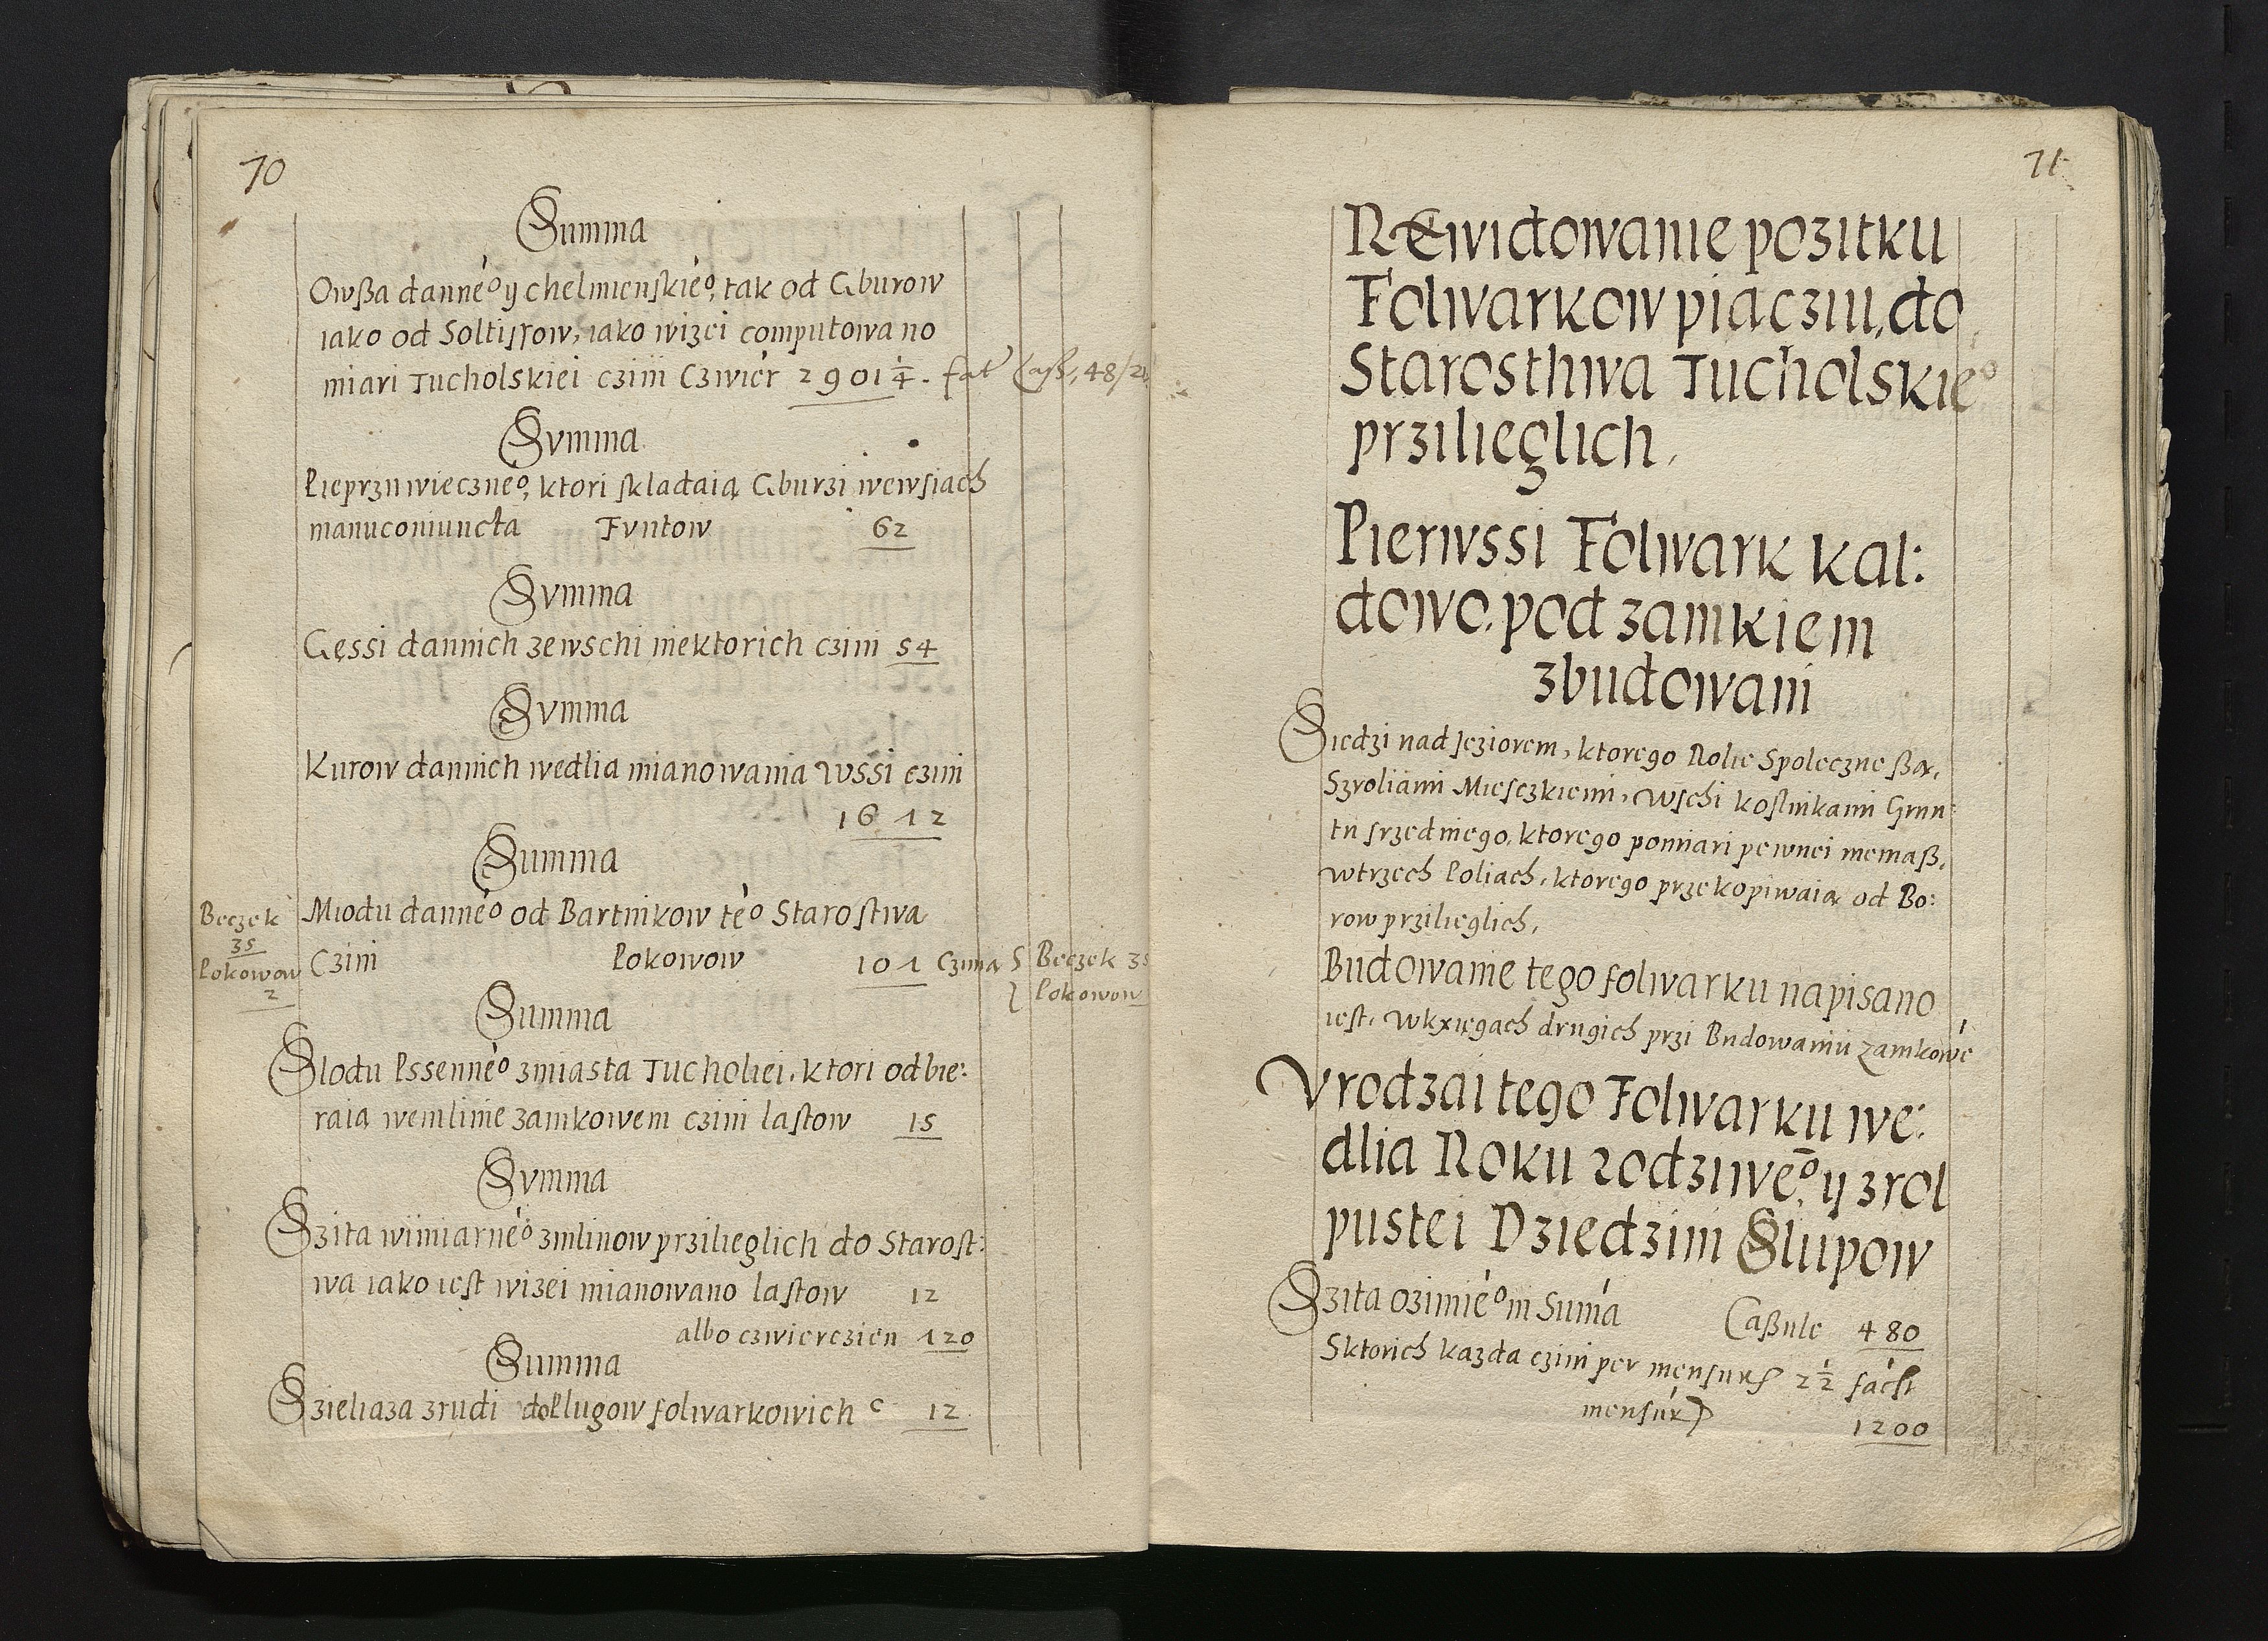 70
Summa
Owßa dannéo y chelmienskiéo, tak od Gburow
iako od Soltissow, iako wizei computowano
miari Tucholskiei czini Czwier 2901 1/4. fat Caß, 48/
Summa
Pieprzu wieczneo, ktori skladaią Gburzi wewsiach
manuconiuncta Funtow 62
Summa
Gęssi dannich zewschi niektorich czini 54
Summa
Kurow dannich wedlia mianowania wssi czini
1612
Summa
Beczek
35
Pokowow
2
Miodu dannéo od Bartnikow téo Starostwa
Czini Pokowow 101 Czinia
Beczek 35
Pokowow
Summa
Slodu Pssennéo zmiasta Tucholiei, ktori odbie:
raią wemlinie zamkowem czini lastow 15
Summa
Szita wimiarnéo zmlinow przilieglich do Starost:
wa iako iest wizei mianowano lastow 12
albo czwierczien 120
Summa
Szieliaza zrudi do Plugow folwarkowich c 12
71
REwidowanie pozitku
Folwarkow piąciu, do
Starosthwa Tucholskieo
przilieglich,
Pierwssi Folwark Kal:
dowo, pod zamkiem
zbudowani
Siedzi nad Jeziorem, ktorego Rolie Spoleczne ßą,
Szroliami Miesczkiemi, wschi koslinkami Grun
tu srzedniego, ktorego pomiari pewnei niemaß,
wtrzech Poliach, ktorego przekopiwaią od Bo:
row przilieglich,
Budowanie tego folwarku napisano
iest, wkxięgach drugich przi Budowaniu zamkowé
Vrodzai tego Folwarku we:
dlia Roku rodziweo, y zrol
pustei Dziedzini Slupow
Szita ozimiéo in Suma Caßule 480
Sktorich kazda czini per mensur 2 1/2 facit
mensur 1200